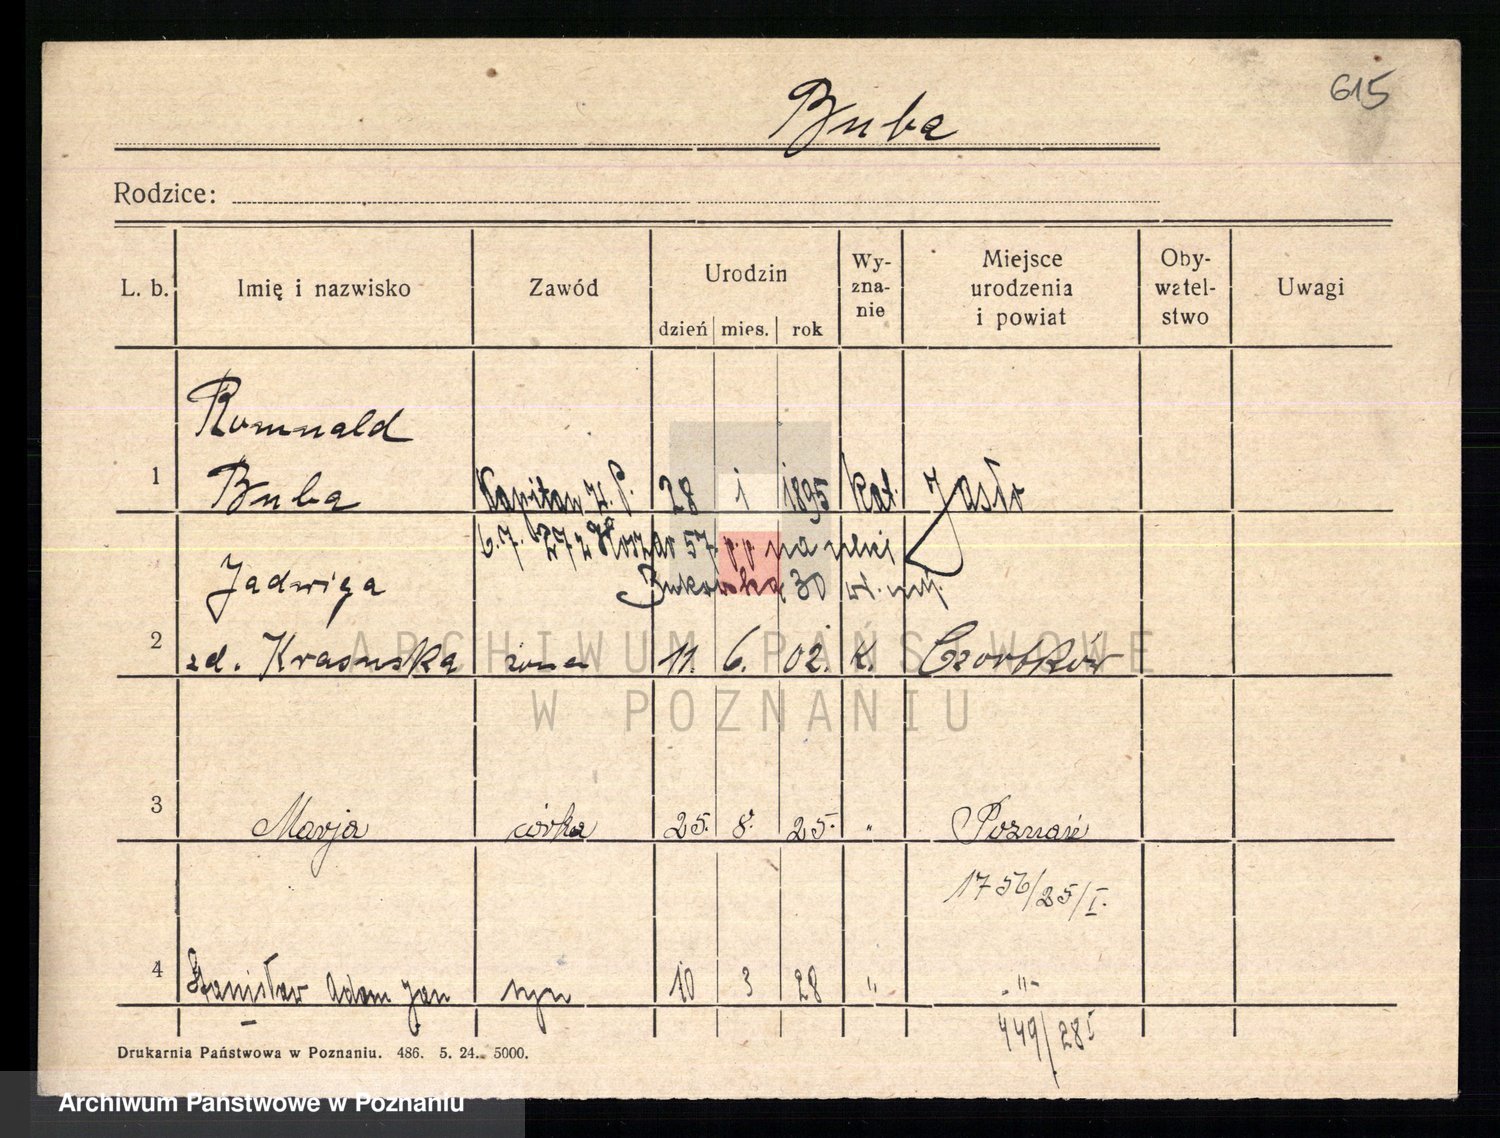 615
Buba
Rodzice:
L. b. Imię i nazwisko Zawód Urodzin Wy-zna-nie Miejsce urodzenia i powiat Oby-watel-stwo Uwagi
dzień mies. rok
Romuald
1 Buba Kapitan W. P. 28 i 1895 kat. Jasło
57. p. p. na ulicy
Bukowska 30
Jadwiga
2 zd. Krasuska żona 11. 6. 02. K. Czortków
3 Marja córka 25. 8. 25. " Poznań
1756/25/I.
4 Stanisław Adam Jan syn 10 3 28 " "
449/28 I
Drukarnia Państwowa w Poznaniu. 486. 5. 24. 5000.
ARCHIWUM PAŃSTWOWE
W POZNANIU
Archiwum Państwowe w Poznaniu